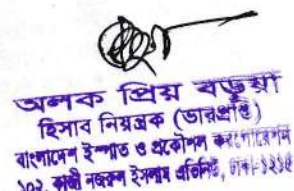 অলক প্রিয় বড়ুয়া
হিসাব নিয়ন্ত্রক (ভারপ্রাপ্ত)
বাংলাদেশ ইস্পাত ও প্রকৌশল করপোরেশন
১০২, কাজী নজরুল ইসলাম এভিনিউ, ঢাকা-১২১৫